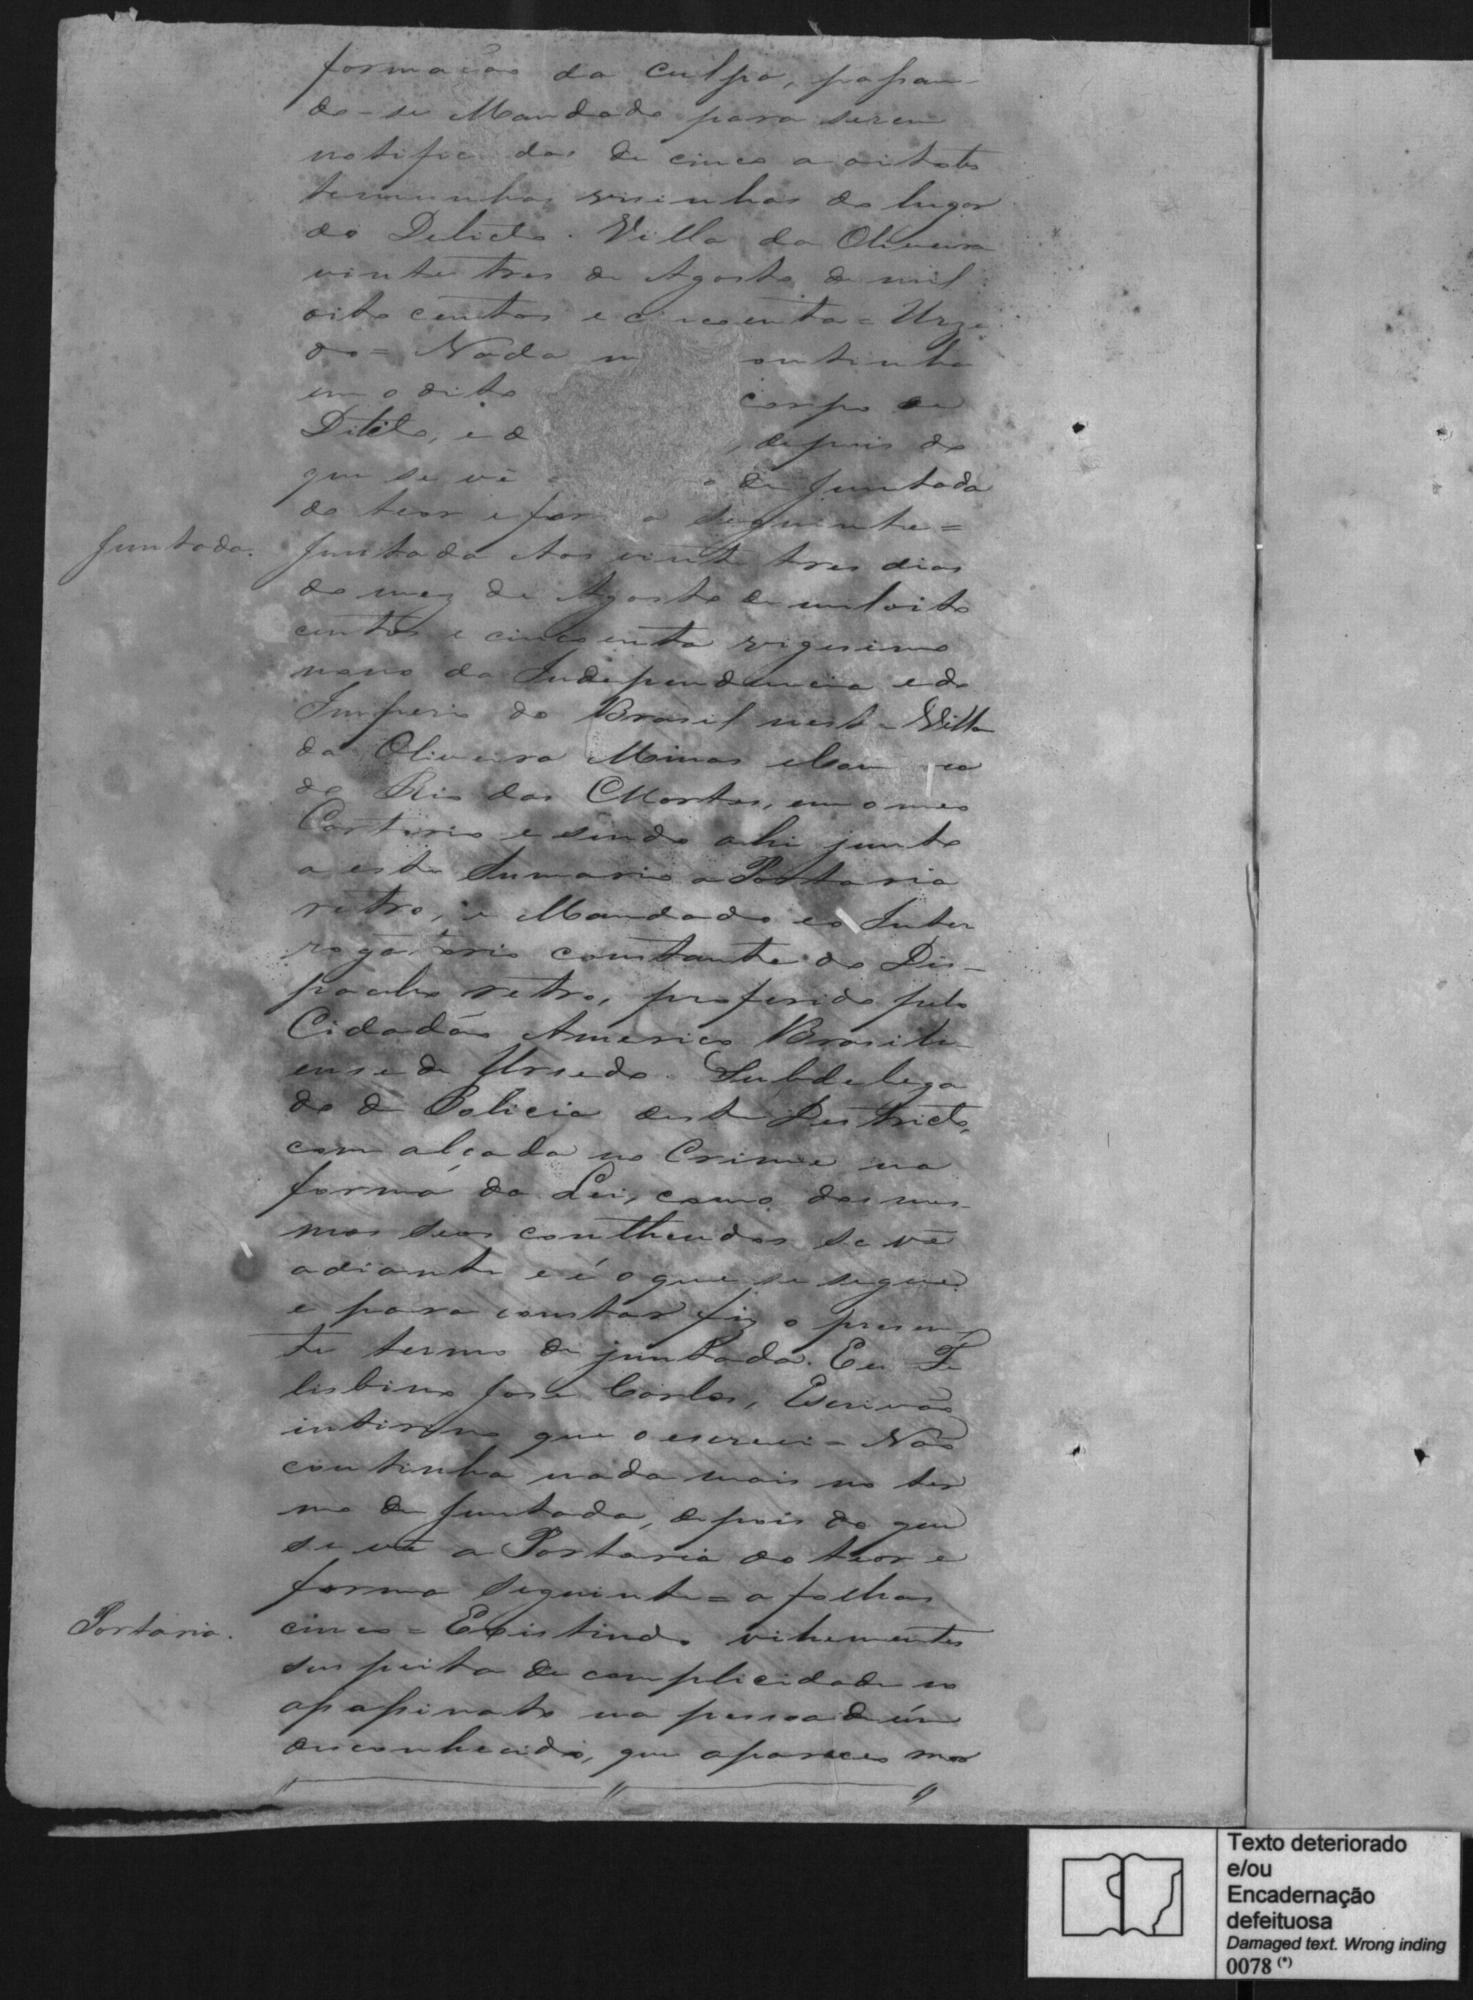 formação da culpa, passan-
do-se Mandado para serem
notificadas de cinco a oito tes
temunhas visinhas do lugar
do Delicto. Villa da Oliveira
vinte tres de Agosto de mil
oito centos e cincoenta = Urze
do = Nada m ontinha
em o dito corpo de
Delicto, e d , depois do
que se vê o de Juntada
do teor e forma seguinte =
Juntada.
Juntada Aos vinte tres dias
do mez de Agosto de mil oito
centos e cincoenta vigesimo
nono da Independencia e do
Imperio do Brasil nesta Villa
da Oliveira Minas e Com ca
do Rio das Mortes, em o meu
Cartorio e sendo ahi junto
a este Summario a Portaria
retro, e Mandado e o Inter
rogatorio constante do Des-
pacho retro, proferido pelo
Cidadão Americo Brasili-
ense de Urzedo. Subdelega
do de Policia deste Destricto,
com alçada no Crime na
forma da Lei, como dos mes-
mos seos conthendos se vê
adiante e é o que se segue
e para constar fiz o presen
te termo de juntada. Eu Fe
lisbino Jose Carlos, Escrivão
intirino que o escrevi = Não
continha nada mais no ter
mo de Juntada, depois do que
se vê a Portaria do teor e
forma seguinte = a folhas
Portaria.
cinco = Existindo vihementes
suspeita de complicidade no
assassinato na pessoa de úm
desconhecido, que apareceo mor